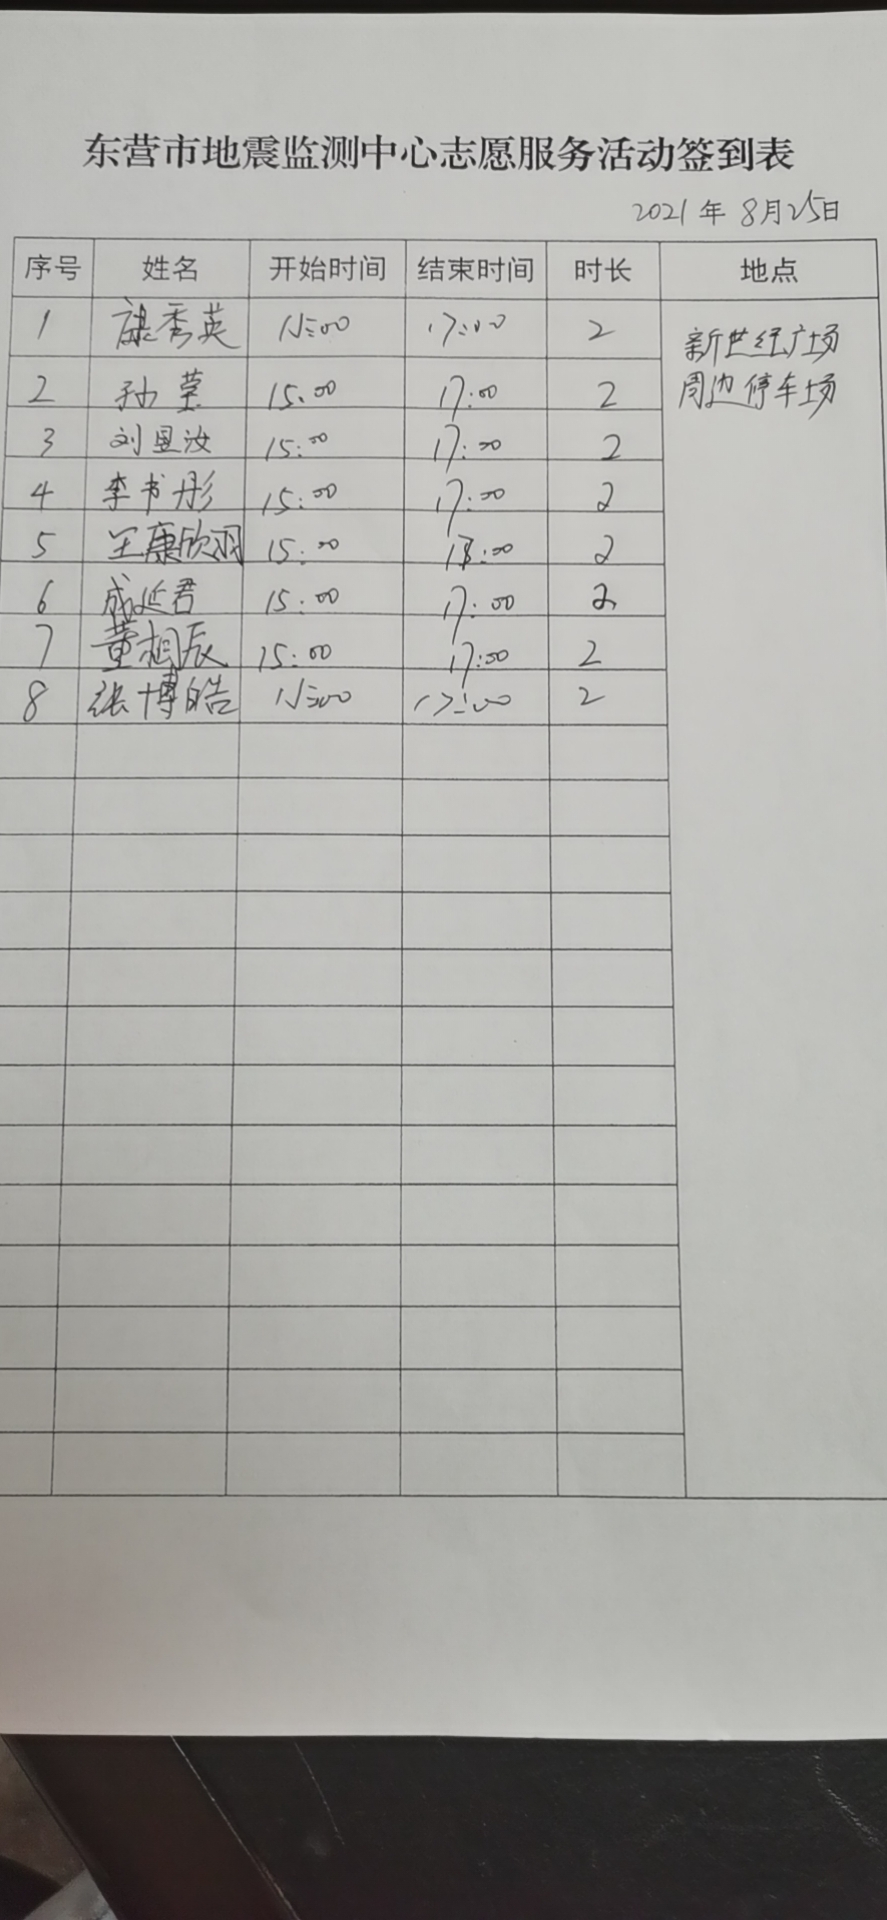 东营市地震监测中心志愿服务活动签到表
2021年 8月25日
序号 姓名 开始时间 结束时间 时长 地点
1 秀英 15:00 17:00 2 新世纪广场
周边停车场
2 孙莹 15:00 17:00 2
3 刘昱汝 15:00 17:00 2
4 李书彤 15:00 17:00 2
5 王康欣羽 15:00 17:00 2
6 成延君 15:00 17:00 2
7 董相辰 15:00 17:00 2
8 张博皓 15:00 17:00 2